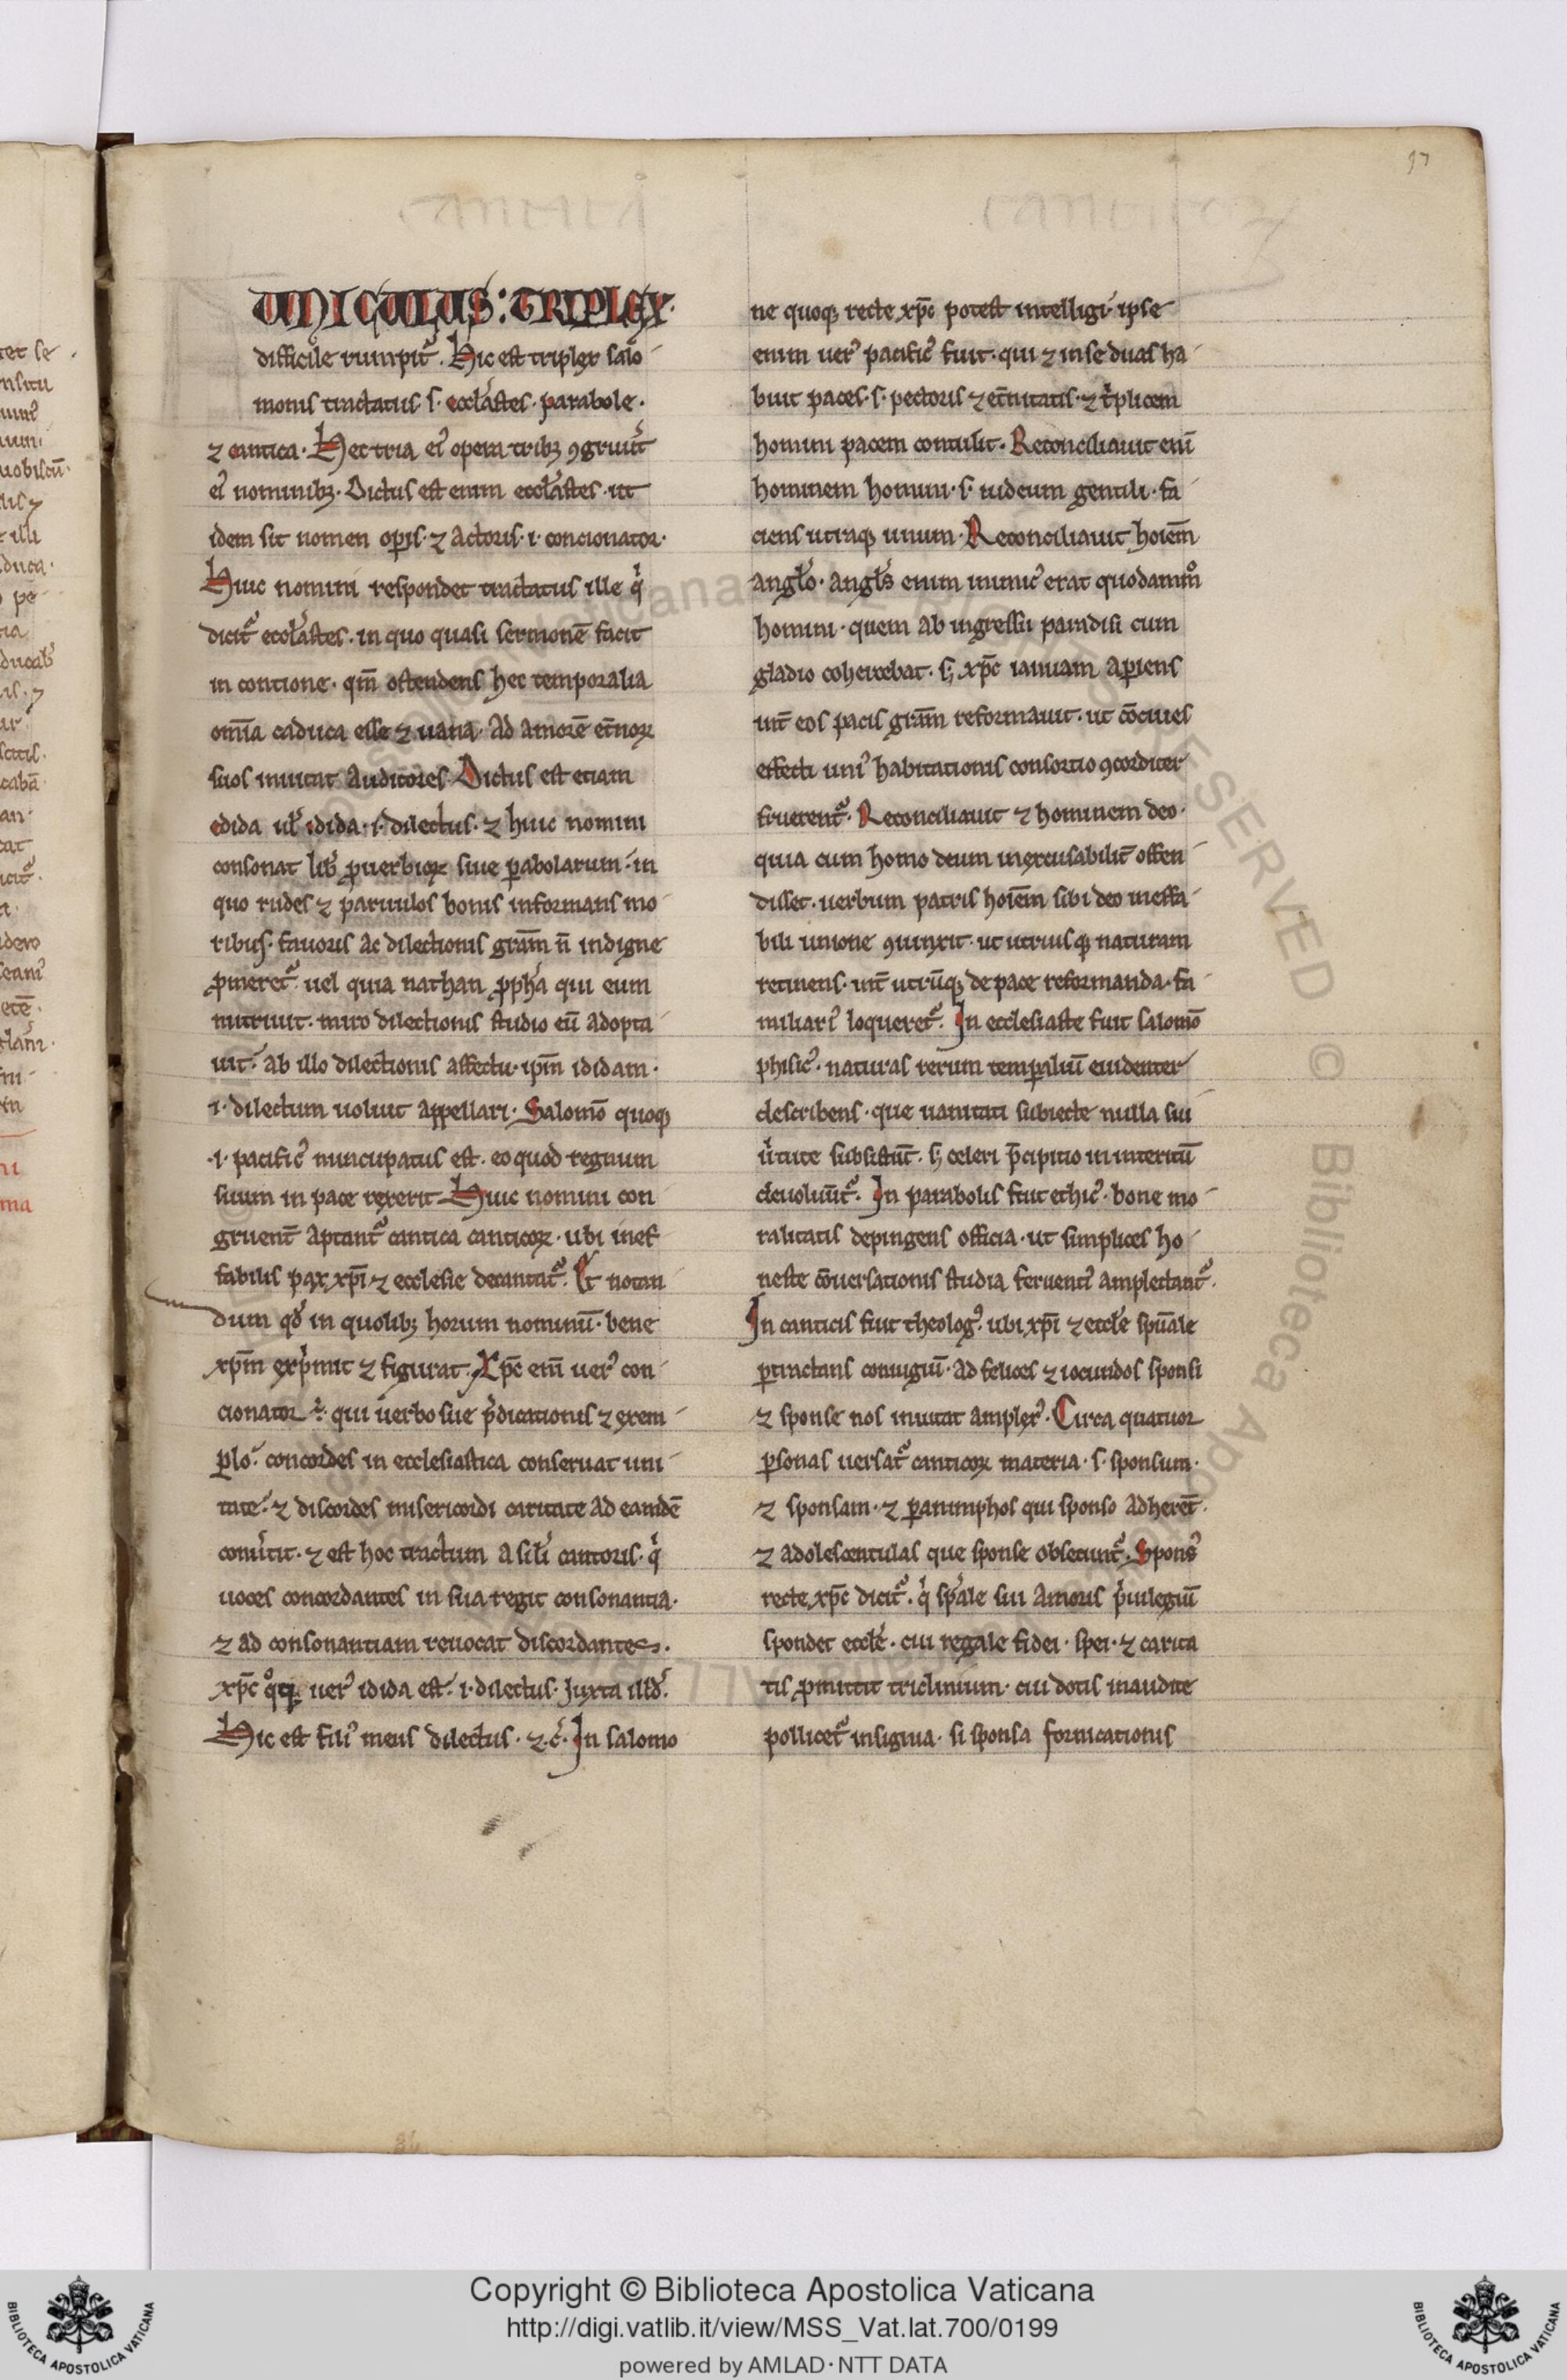 cantica canticoꝝ
97
UNICULUS: TRIPLEX·
difficile rumpit᷑. Hic est triplex salo
monis tractatus .s. eccl̓astes. parabole.
⁊ cantica. Hec tria ei᷒ opera tribꝫ ꝯgruūt
ei᷒ nominibꝫ. Dictus est enim eccl̓astes. ut
idem sit nomen oꝑis. ⁊ actoris .i. concionator.
Huic nomini respondet tractatus ille qͥ
dicit᷑ eccl̓astes. in quo quasi sermonē facit
in contione. qm̄ ostendens hec temporalia
om̄ia caduca esse ⁊ uana. ad amorē et̄noꝝ
suos inuitat auditores. Dictus est etiam
edida ul̓ idida .i. dilectus. ⁊ huic nomini
consonat lib̓ ꝓuerbioꝝ siue ꝑabolarum. in
quo rudes ⁊ paruulos bonis informans mo
ribus. fauoris ac dilectionis gr̄am n̄ indigne
ꝓmeret᷑. uel quia nathan ꝓph̓a qui eum
nutriuit. miro dilectionis studio eū adopta
uit. ab illo dilectionis affectu. ip̄m ididam.
.i. dilectum uoluit appellari. Salomō quoqꝫ
.i. pacific᷒ nuncupatus est. eo quod regnum
suum in pace rexerit. Huic nomini con
gruent̄ aptant᷑ cantica canticoꝝ. ubi inef
fabilis pax xp̄i ⁊ ecclesie decantat᷑. Et notan
dum qd̓ in quolibꝫ horum nominū. bene
xp̄m exp̓mit ⁊ figurat. Xp̄c em̄ uer᷒ con
cionator ē. qui uerbo sue p̄dicationis ⁊ exem
plo. concordes in ecclesiastica conseruat uni
tate. ⁊ discordes misericordi caritate ad eandē
conu̓tit. ⁊ est hoc tractum a sil̓i cantoris. qͥ
uoces concordantes in sua regit consonantia.
⁊ ad consonantiam reuocat discordantes.
xp̄c qͦqꝫ uer᷒ idida est .i. dilectus. Iuxta illd̓.
Hic est fili᷒ meus dilectus. ⁊.c̓. In salomo
ne quoqꝫ recte xp̄c potest intelligi. ipse
enim uer᷒ pacific᷒ fuit. qui ⁊ in se duas ha
buit paces .s. pectoris ⁊ et̄nitatis. ⁊ tͥplicem
homini pacem contulit. Reconciliauit enī
hominem homini .s. iudeum gentili. fa
ciens utraqꝫ unum. Reconciliauit hoīem
angl̓o. angl̓s enim inimic᷒ erat quodammͦ
homini. quem ab ingressu paradisi cum
gladio cohercebat. sꝫ xp̄c ianuam aꝑiens
int̄ eos pacis gr̄am reformauit. ut cōciues
effecti uni᷒ habitationis consortio ꝯcorditer
fruerent᷑. Reconciliauit ⁊ hominem deo.
quia cum homo deum inexcusabilit̄ offen
disset. uerbum patris hoīem sibi deo ineffa
bili unione ꝯiunxit. ut utriusqꝫ naturam
retinens. int̄ utrūqꝫ de pace reformanda. fa
miliari᷒ loqueret᷑. In ecclesiaste fuit salomō
phisic᷒. naturas rerum temꝑaliū euidenter
describens. que uanitati subiecte nulla sui
uͥtute subsistūt. sꝫ celeri p̄cipitio in interitū
deuoluūt᷑. In parabolis fuit ethic᷒. bone mo
ralitatis depingens officia. ut simplices ho
neste cōuersationis studia feruenti᷒ amplectant᷑.
In canticis fuit theolog᷒. ubi xp̄i ⁊ eccl̓e spūale
ꝑtractans coniugiū. ad felices ⁊ iocundos sponsi
⁊ sponse nos inuitat amplex᷒. Circa quatuor
ꝑsonas uersat᷑ canticoꝝ materia .s. sponsum.
⁊ sponsam. ⁊ ꝑanimphos qui sponso adherēt.
⁊ adolescentulas que sponse obsecunt᷑. Spons᷒
recte xp̄c dicit᷑. qͥ sp̓ale sui amoris pͥuilegiū
spondet eccl̓e. cui regale fidei. spei. ⁊ carita
tis ꝓmittit triclinium. cui dotis inaudite
pollicet᷑ insignia. si sponsa fornicationis
Copyright © Biblioteca Apostolica Vaticana
http://digi.vatlib.it/view/MSS_Vat.lat.700/0199
powered by AMLAD·NTT DATA